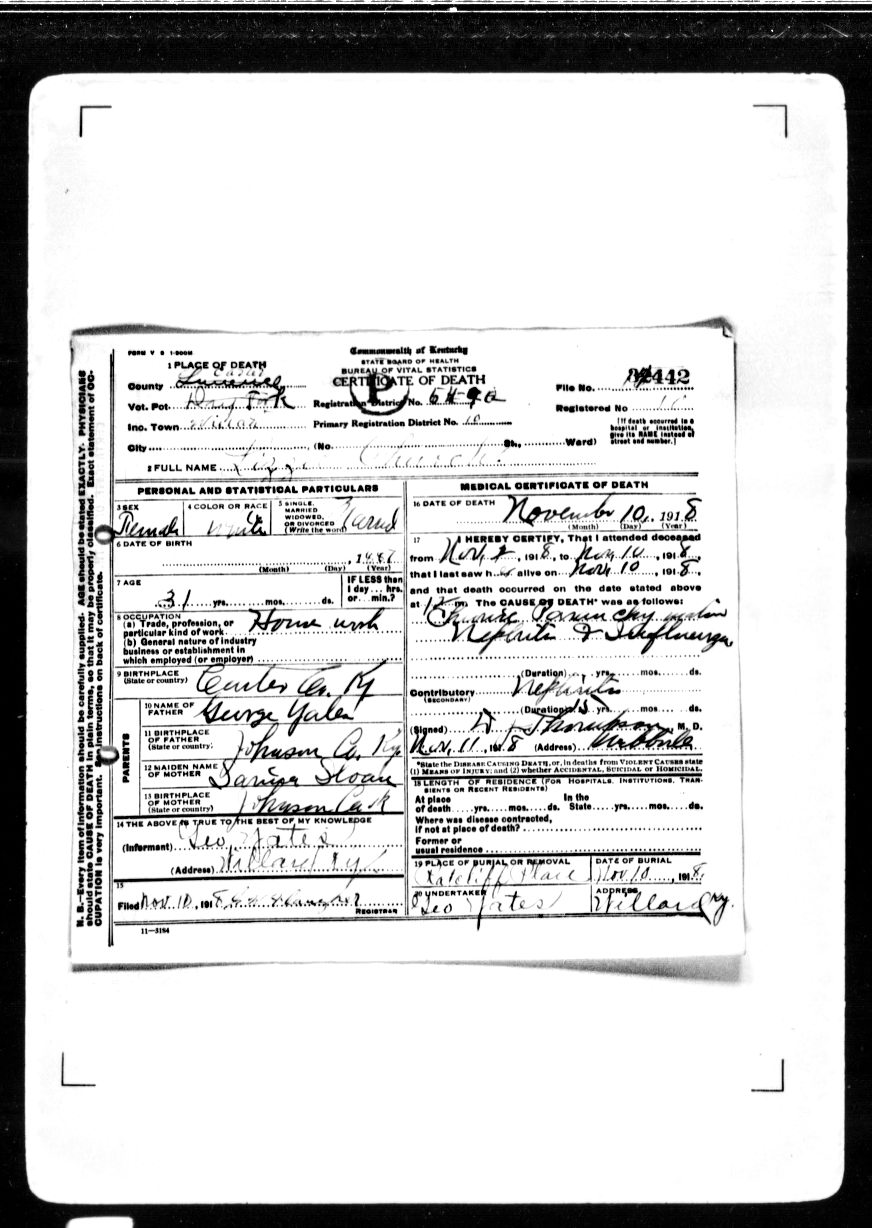 FORM V S 1-500M
Commonwealth of Kentucky
STATE BOARD OF HEALTH
BUREAU OF VITAL STATISTICS
CERTIFICATE OF DEATH
P
1 PLACE OF DEATH
County Carter
Vot. Pct. Dry Fork
Inc. Town Willard
City
Registration District No. 5490
Primary Registration District No. 10
(No. St., Ward)
File No. 442
Registered No
[If death occurred in a hospital or institution, give its NAME instead of street and number.]
2 FULL NAME Lizzie Church
PERSONAL AND STATISTICAL PARTICULARS
3 SEX
Female
4 COLOR OR RACE
White
5 SINGLE, MARRIED WIDOWED, OR DIVORCED (Write the word)
6 DATE OF BIRTH
, 1887
(Month) (Day) (Year)
7 AGE
31 yrs. mos. ds.
IF LESS than 1 day hrs. or min.?
8 OCCUPATION
(a) Trade, profession, or particular kind of work House work
(b) General nature of industry business or establishment in which employed (or employer)
9 BIRTHPLACE
(State or country) Carter Co. Ky
PARENTS
10 NAME OF FATHER George Yates
11 BIRTHPLACE OF FATHER (State or country) Johnson Co. Ky
12 MAIDEN NAME OF MOTHER Sloan
13 BIRTHPLACE OF MOTHER (State or country) Johnson Co K
14 THE ABOVE IS TRUE TO THE BEST OF MY KNOWLEDGE
(Informant) Geo Yates
(Address) Willard Ky
15
Filed Nov. 10, 1918
REGISTRAR
11—3184
MEDICAL CERTIFICATE OF DEATH
16 DATE OF DEATH
November 10, 1918
(Month) (Day) (Year)
17 I HEREBY CERTIFY, That I attended deceased
from Nov. 2, 1918, to Nov 10, 1918,
that I last saw h alive on Nov 10, 1918,
and that death occurred on the date stated above
at m. The CAUSE OF DEATH* was as follows:
Nephritis & Influenza
(Duration) yrs. mos. ds.
Contributory Nephritis
(SECONDARY)
(Duration) yrs. mos. ds.
(Signed) Thompson, M. D.
Nov. 11, 1918 (Address) Webbville
*State the DISEASE CAUSING DEATH, or, in deaths from VIOLENT CAUSES state
(1) MEANS OF INJURY; and (2) whether ACCIDENTAL, SUICIDAL or HOMICIDAL.
18 LENGTH OF RESIDENCE (FOR HOSPITALS, INSTITUTIONS, TRANSIENTS OR RECENT RESIDENTS)
At place of death yrs. mos. ds. In the State yrs. mos. ds.
Where was disease contracted, if not at place of death?
Former or usual residence
19 PLACE OF BURIAL OR REMOVAL
Ratcliff Place
DATE OF BURIAL
Nov. 10, 1918
20 UNDERTAKER
Geo Yates
ADDRESS
Willard Ky.
N. B.—Every item of information should be carefully supplied. AGE should be stated EXACTLY. PHYSICIANS
should state CAUSE OF DEATH in plain terms, so that it may be properly classified. Exact statement of OC-
CUPATION is very important. See instructions on back of certificate.